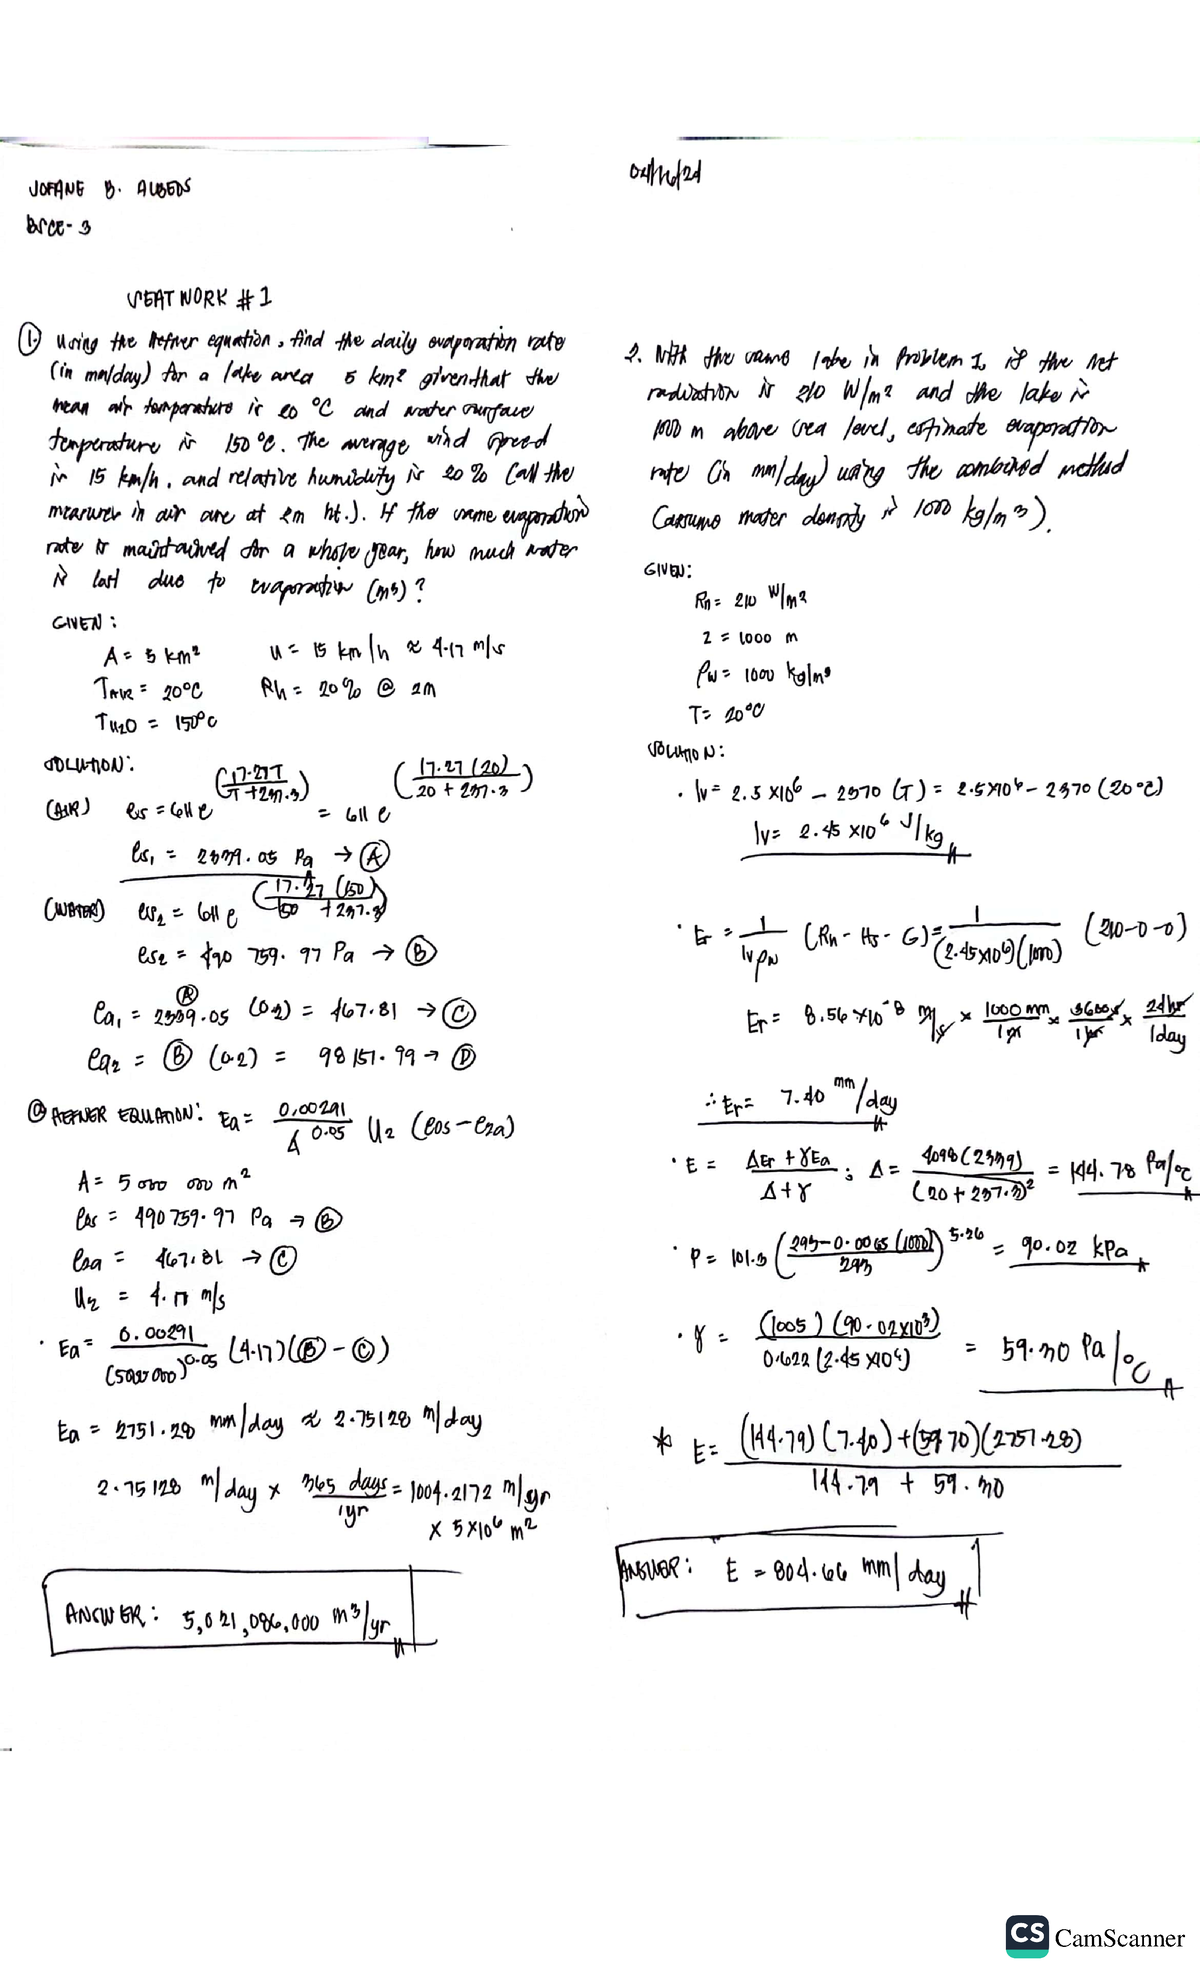 JOFANE B. ALBEDS
BSCE-3
04/16/24
SEATWORK #1
1. Using the Hefner equation, find the daily evaporation rate
(in mm/day) for a lake area 5 km² given that the
mean air temperature is 20 °C and water surface
temperature is 150 °C. The average wind speed
is 15 km/h, and relative humidity is 20% (all the
measures in air are at 2m ht.). If the same evaporation
rate is maintained for a whole year, how much water
is lost due to evaporation (m³)?
GIVEN:
A = 5 km² u = 15 km/h ≈ 4.17 m/s
TAIR = 20°C Rh = 20% @ 2m
TH2O = 150°C
SOLUTION:
(AIR) es = 611 e^(17.27T / T+237.3) = 611 e^(17.27(20) / 20+237.3)
es₁ = 2339.05 Pa → Ⓐ
(WATER) es₂ = 611 e^(17.27(150) / 150+237.3)
es₂ = 490 759.97 Pa → Ⓑ
Ⓐ
ea₁ = 2339.05 (0.2) = 467.81 → Ⓒ
ea₂ = Ⓑ (0.2) = 98 151.99 → Ⓓ
@ HEFNER EQUATION: Ea = 0.00291 / A^0.05 U₂ (eos - e2a)
A = 5 000 000 m²
eos = 490 759.97 Pa → Ⓑ
e2a = 467.81 → Ⓒ
U₂ = 4.17 m/s
· Ea = 0.00291 / (5000 000)^0.05 (4.17)(Ⓑ - Ⓒ)
Ea = 2751.28 mm/day ≈ 2.75128 m/day
2.75128 m/day × 365 days / 1yr = 1004.2172 m/yr
× 5×10⁶ m²
ANSWER: 5,021,086,000 m³/yr
2. With the same lake in Problem 1, if the net
radiation is 210 W/m² and the lake is
1000 m above sea level, estimate evaporation
rate (in mm/day) using the combined method
(assume water density is 1000 kg/m³).
GIVEN:
Rn = 210 W/m²
Z = 1000 m
ρw = 1000 kg/m³
T = 20°C
SOLUTION:
· lv = 2.5 ×10⁶ - 2370 (T) = 2.5×10⁶ - 2370 (20°C)
lv = 2.45 ×10⁶ J/kg
· Er = 1 / lvρw (Rn - Hs - G) = 1 / (2.45×10⁶)(1000) (210-0-0)
Er = 8.56 ×10⁻⁸ m/s × 1000 mm / 1m × 3600s / 1hr × 24hr / 1day
∴ Er = 7.40 mm/day
· E = ΔEr + γEa / Δ+γ ; Δ = 4098(2339) / (20+237.3)² = 144.78 Pa/°C
· P = 101.3 (293-0.0065(1000) / 293)^5.26 = 90.02 kPa
· γ = (1005)(90.02×10³) / 0.622(2.45×10⁶) = 59.30 Pa/°C
* E = (144.79)(7.40)+(59.70)(2751.28) / 144.79 + 59.30
ANSWER: E = 804.66 mm/day
CS CamScanner